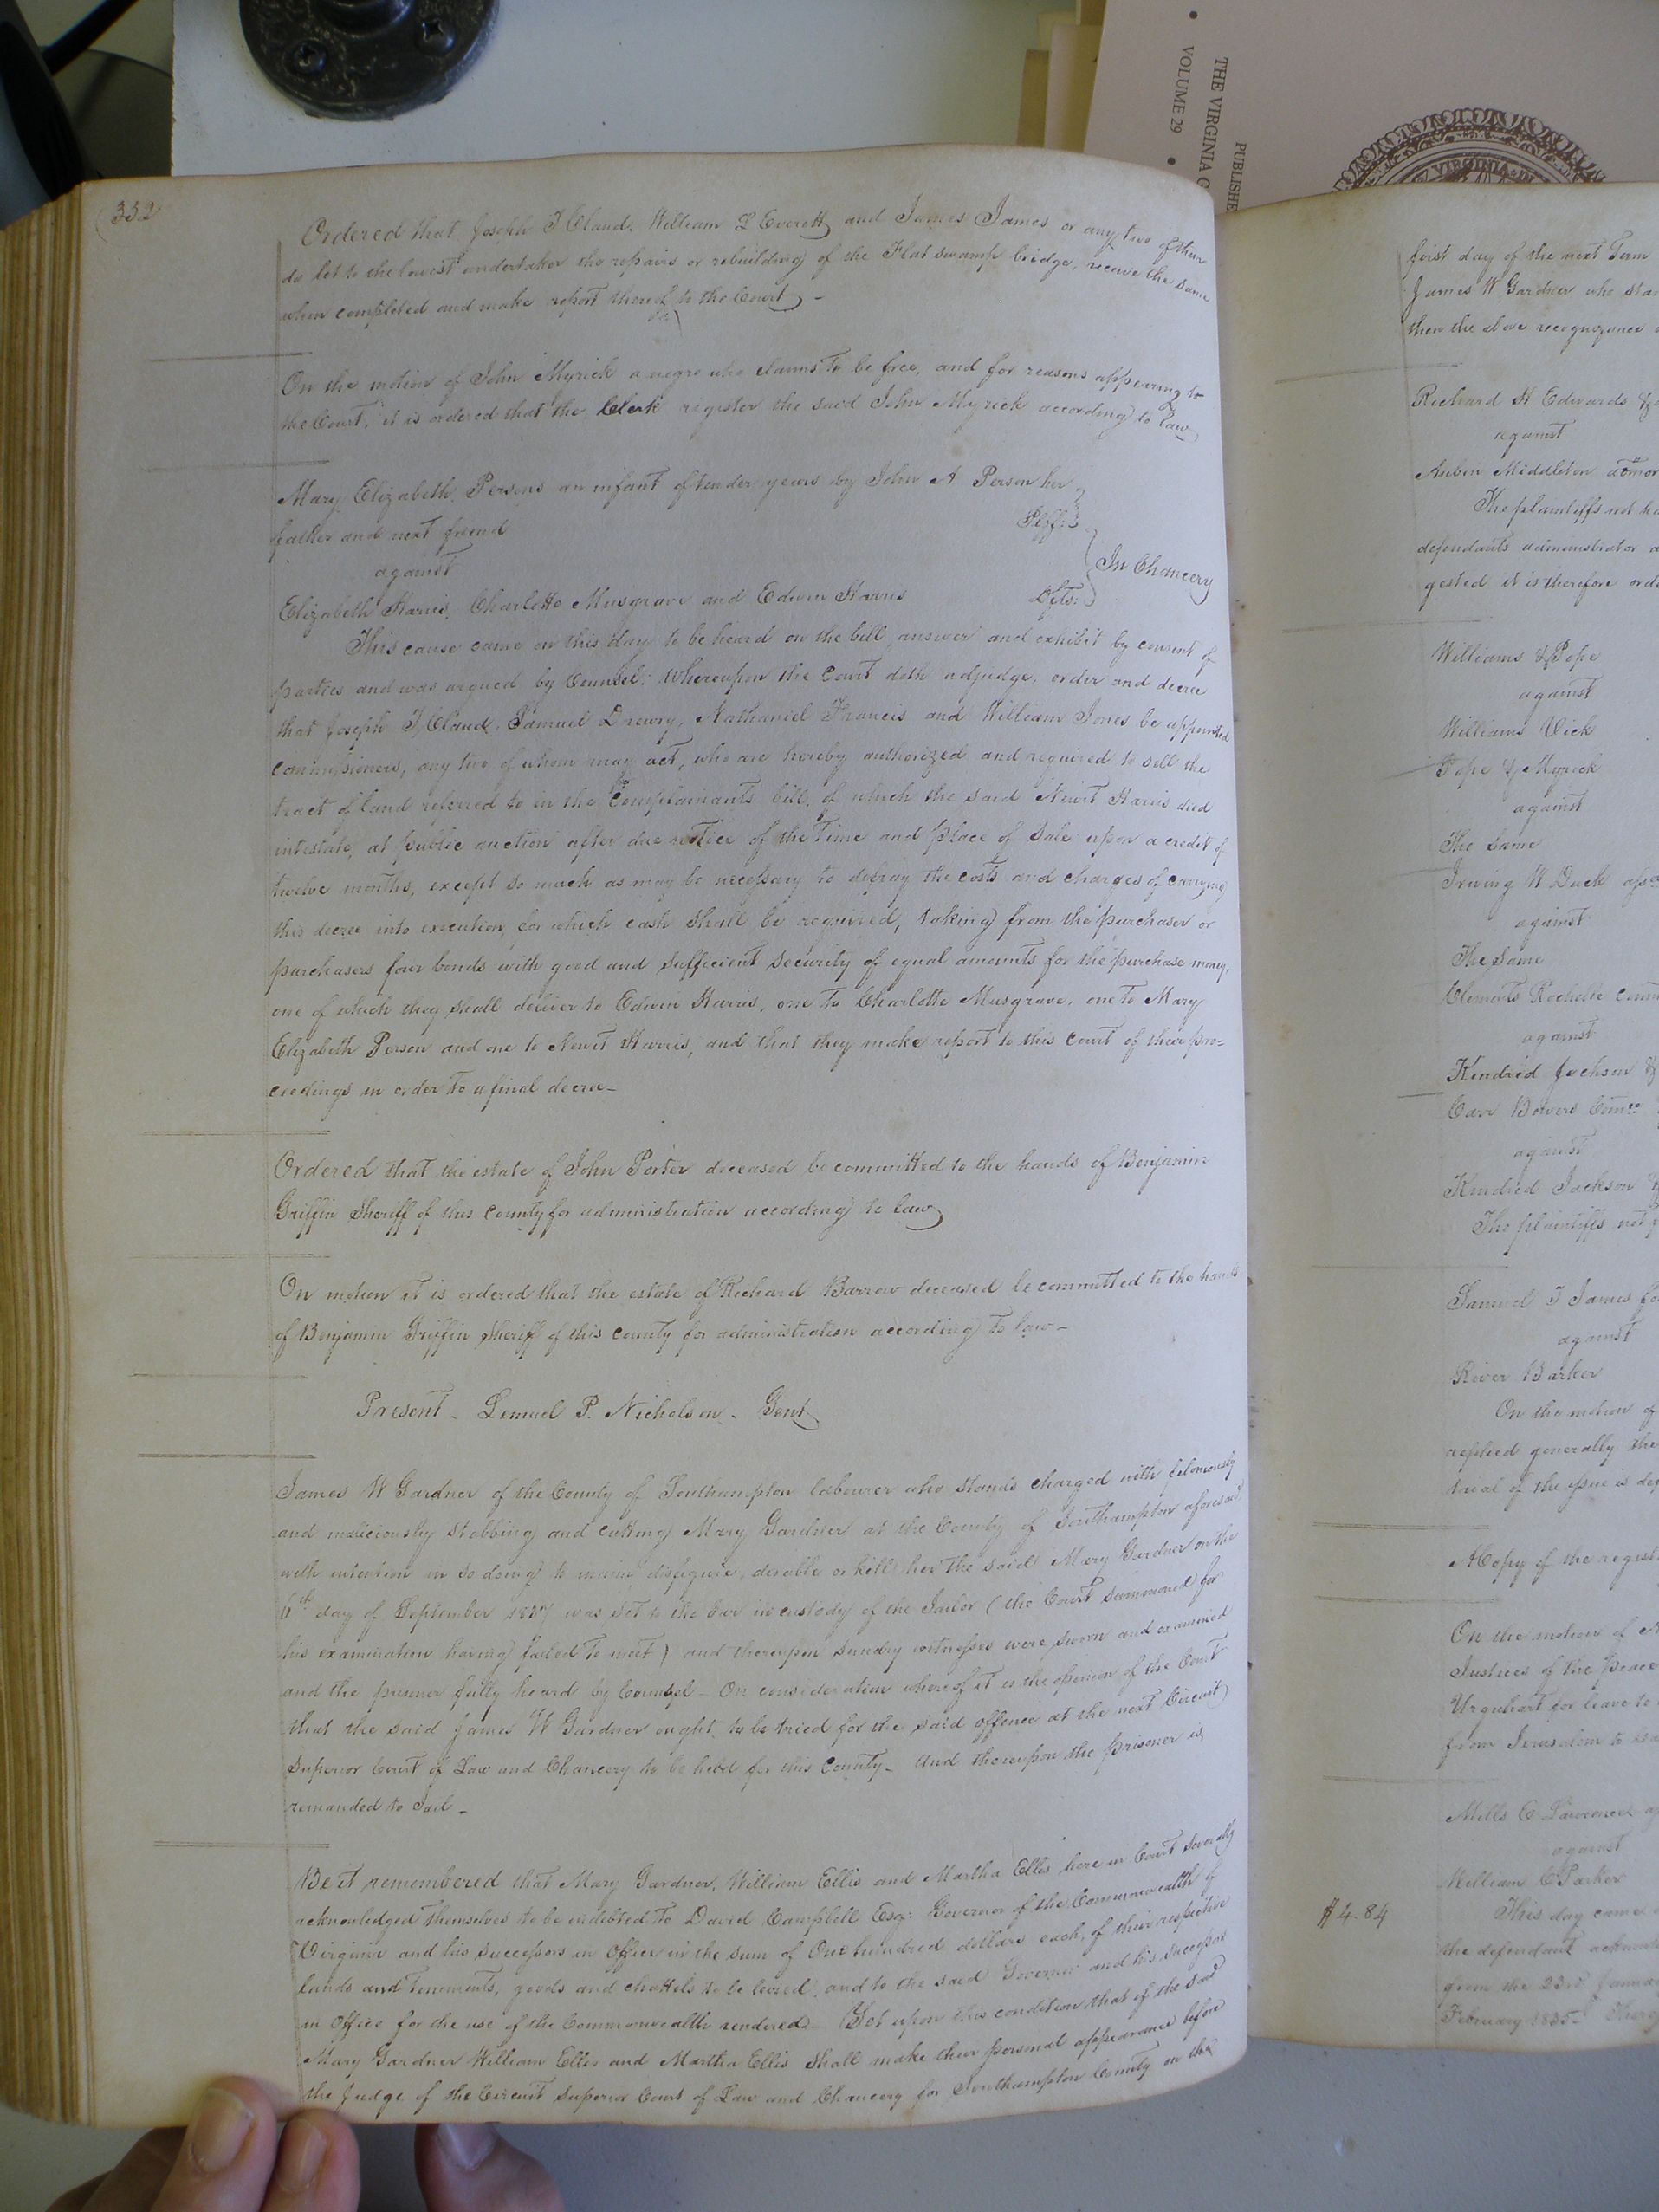 THE VIRGINIA G
VOLUME 29
PUBLISHE
VIRGINIA
332
Ordered that Joseph T Claud, William L Everett and James James or any two of them
do let to the lowest undertaker the repairs or rebuilding of the Flat swamp bridge, receive the same
when completed and make report thereof to the Court –
On the motion of John Myrick a negro who claims to be free, and for reasons appearing to
the Court, it is ordered that the Clerk register the said John Myrick according to law
Mary Elizabeth Persons an infant of tender years by John A Person her
father and next friend Plff:
against
In Chancery
Elizabeth Harris, Charlotte Musgrave and Edwin Harris Dfts:
This cause came on this day to be heard on the bill, answer and exhibit by consent of
parties and was argued by Counsel: Whereupon the Court doth adjudge, order and decree
that Joseph T Claud, Samuel Drewry, Nathaniel Francis and William Jones be appointed
commissioners, any two of whom may act, who are hereby authorized and required to sell the
tract of land referred to in the Complainants bill, of which the said Newit Harris died
intestate, at public auction after due notice of the time and place of sale upon a credit of
twelve months, except so much as may be necessary to defray the costs and charges of carrying
this decree into execution, for which cash shall be required, taking from the purchaser or
purchasers four bonds with good and sufficient security of equal amounts for the purchase money,
one of which they shall deliver to Edwin Harris, one to Charlotte Musgrave, one to Mary
Elizabeth Person and one to Newit Harris, and that they make report to this Court of their pro=
ceedings in order to a final decree –
Ordered that the estate of John Porter deceased be committed to the hands of Benjamin
Griffin Sheriff of this County for administration according to law
On motion it is ordered that the estate of Richard Barrow deceased be committed to the hands
of Benjamin Griffin Sheriff of this county for administration according to law –
Present – Lemuel P. Nicholson – Gent
James W Gardner of the County of Southampton labourer who stands charged with feloniously
and maliciously stabbing and cutting Mary Gardner at the County of Southampton aforesaid
with intention in so doing to maim disfigure, disable or kill her the said Mary Gardner on the
6th day of September 1837 was set to the bar in custody of the Jailor (the Court summoned for
his examination having failed to meet) and thereupon sundry witnesses were sworn and examined
and the prisoner fully heard by Counsel – On consideration whereof it is the opinion of the Court
that the said James W Gardner ought to be tried for the said offence at the next Circuit
Superior Court of Law and Chancery to be held for this County – And thereupon the prisoner is
remanded to Jail –
Be it remembered that Mary Gardner, William Ellis and Martha Ellis here in Court severally
acknowledged themselves to be indebted to David Campbell Esq: Governor of the Commonwealth of
Virginia and his successors in Office in the sum of One hundred dollars each, of their respective
lands and tenements, goods and chattels to be levied, and to the said Governor and his successors
in Office for the use of the Commonwealth rendered – Yet upon this condition that if the said
Mary Gardner William Ellis and Martha Ellis shall make their personal appearance before
the Judge of the Circuit Superior Court of Law and Chancery for Southampton County on the
first day of the next Term
James W Gardner who stan
then the above recognizance
Richard H Edwards &
against
Aubin Middleton admor
The plaintiffs not ha
defendants administrator
gested it is therefore orde
Williams & Pope
against
Williams Vick
Pope & Myrick
against
The Same
Irving W Duck
against
The Same
Clements Rochelle
against
Kindred Jackson &
Carr Bowers
against
Kindred Jackson &
The plaintiffs not
Samuel T James
against
River Barker
On the motion of
replied generally the
trial of the issue is
A Copy of the
On the motion of
Justices of the peace
Urquhart for leave to
from Jerusalem to
Mills C Lawrence
against
William C Parker
$4.84
This day came
the defendant
from the 23rd
February 1835